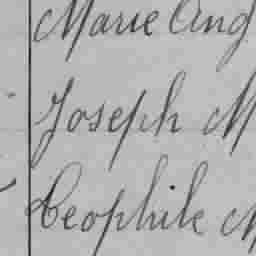 Marie Ang
Joseph M
Ceophile M